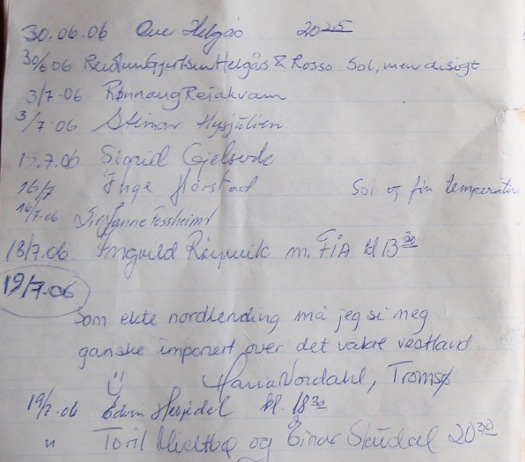 30.06.06 Ove Helgås 20
30/6 06 Helgås & Rosso Sol, men disigt
3/7-06 Rønnaug Reiakvam
3/7-06 Steinar
15.7.06 Sigrid Gjelsvik
16/7 Inge Horstad Sol og fin temperatur
16/7-06 Fossheim
18/7.06. Ingvild m. FIA kl 13 30
19/7-06
Som ekte nordlending må jeg si meg
ganske imponert over det vakre vestland
Maria Nordahl, Tromsø
19/7-06 Edvin kl. 18 30
" Toril og Einar 20 30